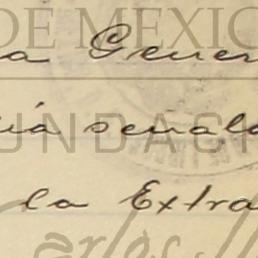 DE MEXIC
a Gener
ia señala
UNDACI
la Extra
Carlos